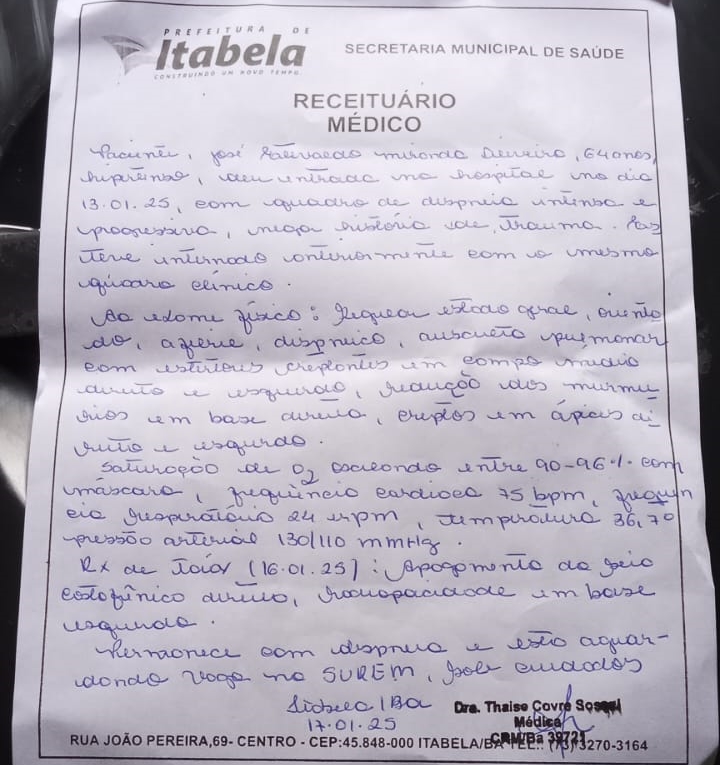 PREFEITURA DE
Itabela
CONSTRUINDO UM NOVO TEMPO
SECRETARIA MUNICIPAL DE SAÚDE
RECEITUÁRIO
MÉDICO
Paciente, José miranda, 64 anos,
hipertenso, deu entrada no hospital no dia
13.01.25, com quadro de dispneia intensa e
progressiva, nega história de trauma.
teve internado anteriormente com o mesmo
quadro clínico.
Ao exame físico: Regular estado geral, orienta
do, afebril, dispneico, ausculta pulmonar
com estertores creptantes em campo médio
direito e esquerdo, redução dos murmu
rios em base direita, em ápices di
reito e esquerdo.
Saturação de O2 oscilando entre 90-96% com
máscara, frequência cardíaca 75 bpm, frequên
cia respiratória 24 irpm, temperatura 36,7º
pressão arterial 130/110 mmHg.
RX de Tórax (16.01.25): Apagamento do seio
costofrênico direito, em base
esquerda.
Permanece com dispneia e está aguar-
dando vaga na SUREM, sob cuidados
Itabela / BA
17.01.25
Dra. Thaise Covre
Médica
CRM/Ba 39721
RUA JOÃO PEREIRA,69- CENTRO - CEP:45.848-000 ITABELA/BA TEL.: (73)3270-3164